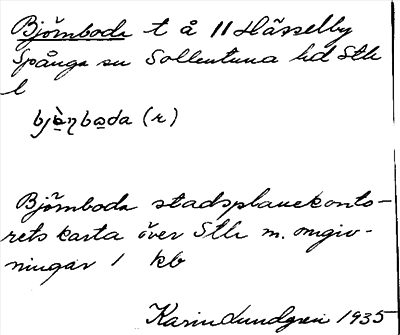 Björnboda t å 11 Hässelby
Spånga sn Sollentuna hd Sth
l
bjò̤ṇbo̤da (r)
Björnboda stadsplanekonto-
rets karta över Sth m. omgiv-
ningar 1 kb
Karin Lundgren 1935